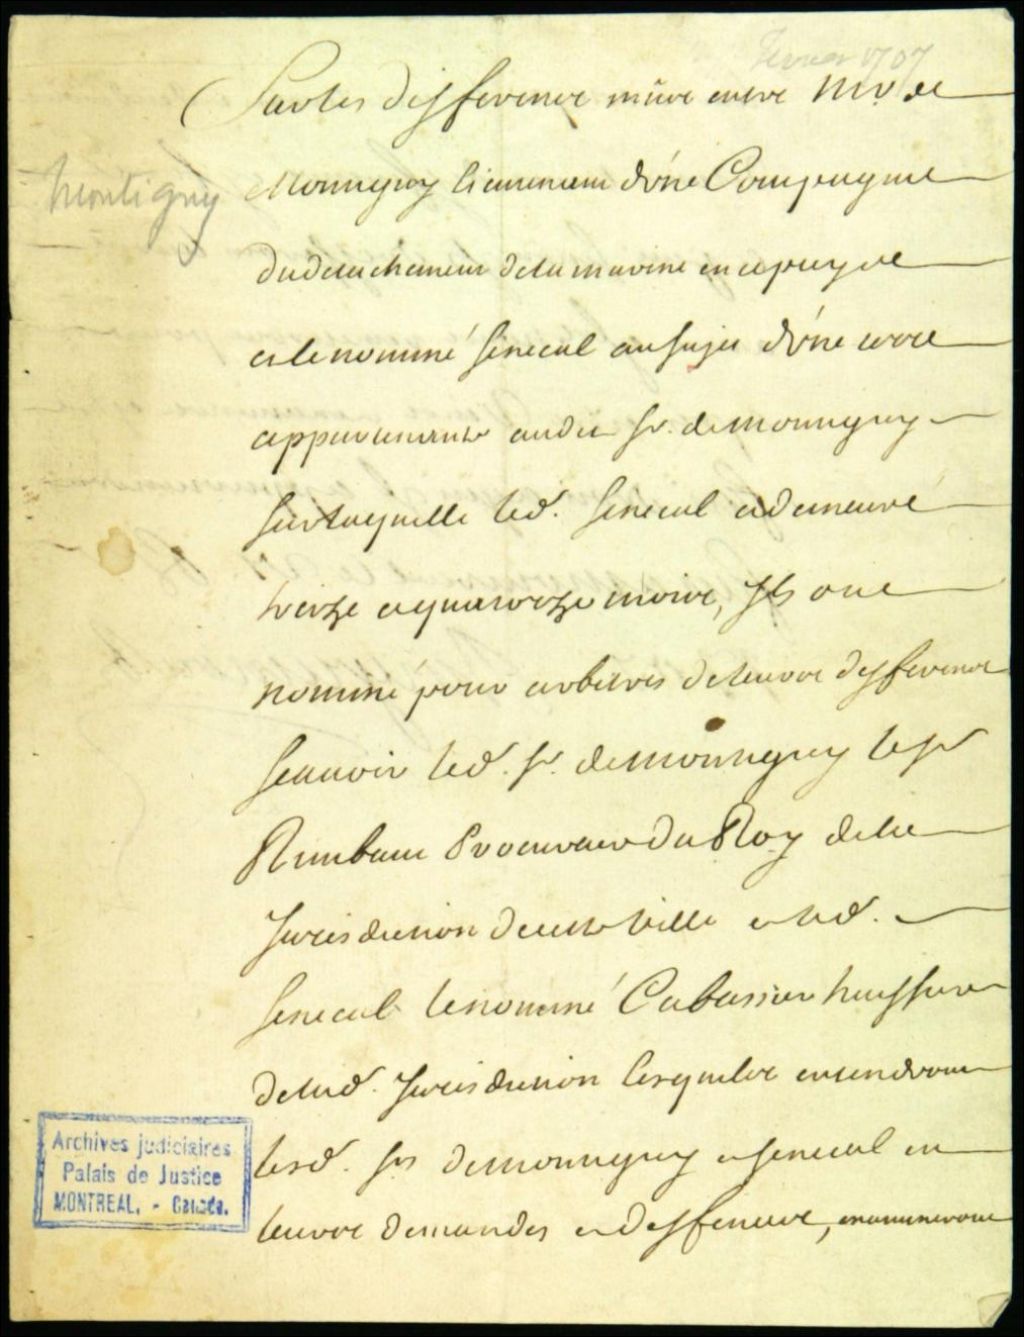 fevrier 1707
Sur les differences mües entre Mr. de
Montigny
Montigny lieutenant d'une Compagnie
du detachement de la marine en ce pays
et le nommé Senecal au sujet d'une terre
appartenante audit Sr. de Montigny
sur laquelle led. Senecal a demeuré
treize a quatorze mois, Ils ont
nommé pour arbitres de leurs differences
scauoir led. Sr. de Montigny le Sr
Raimbault Procureur du Roy de la
Jurisdiction de cette Ville et led.
Senecal le nommé Cabassier huissier
de lad. Jurisdiction lesquels entendront
lesd. Srs de Montigny et Senecal en
leurs demandes et deffences, examineront
Archives judiciaires
Palais de Justice
MONTREAL. - Canada.